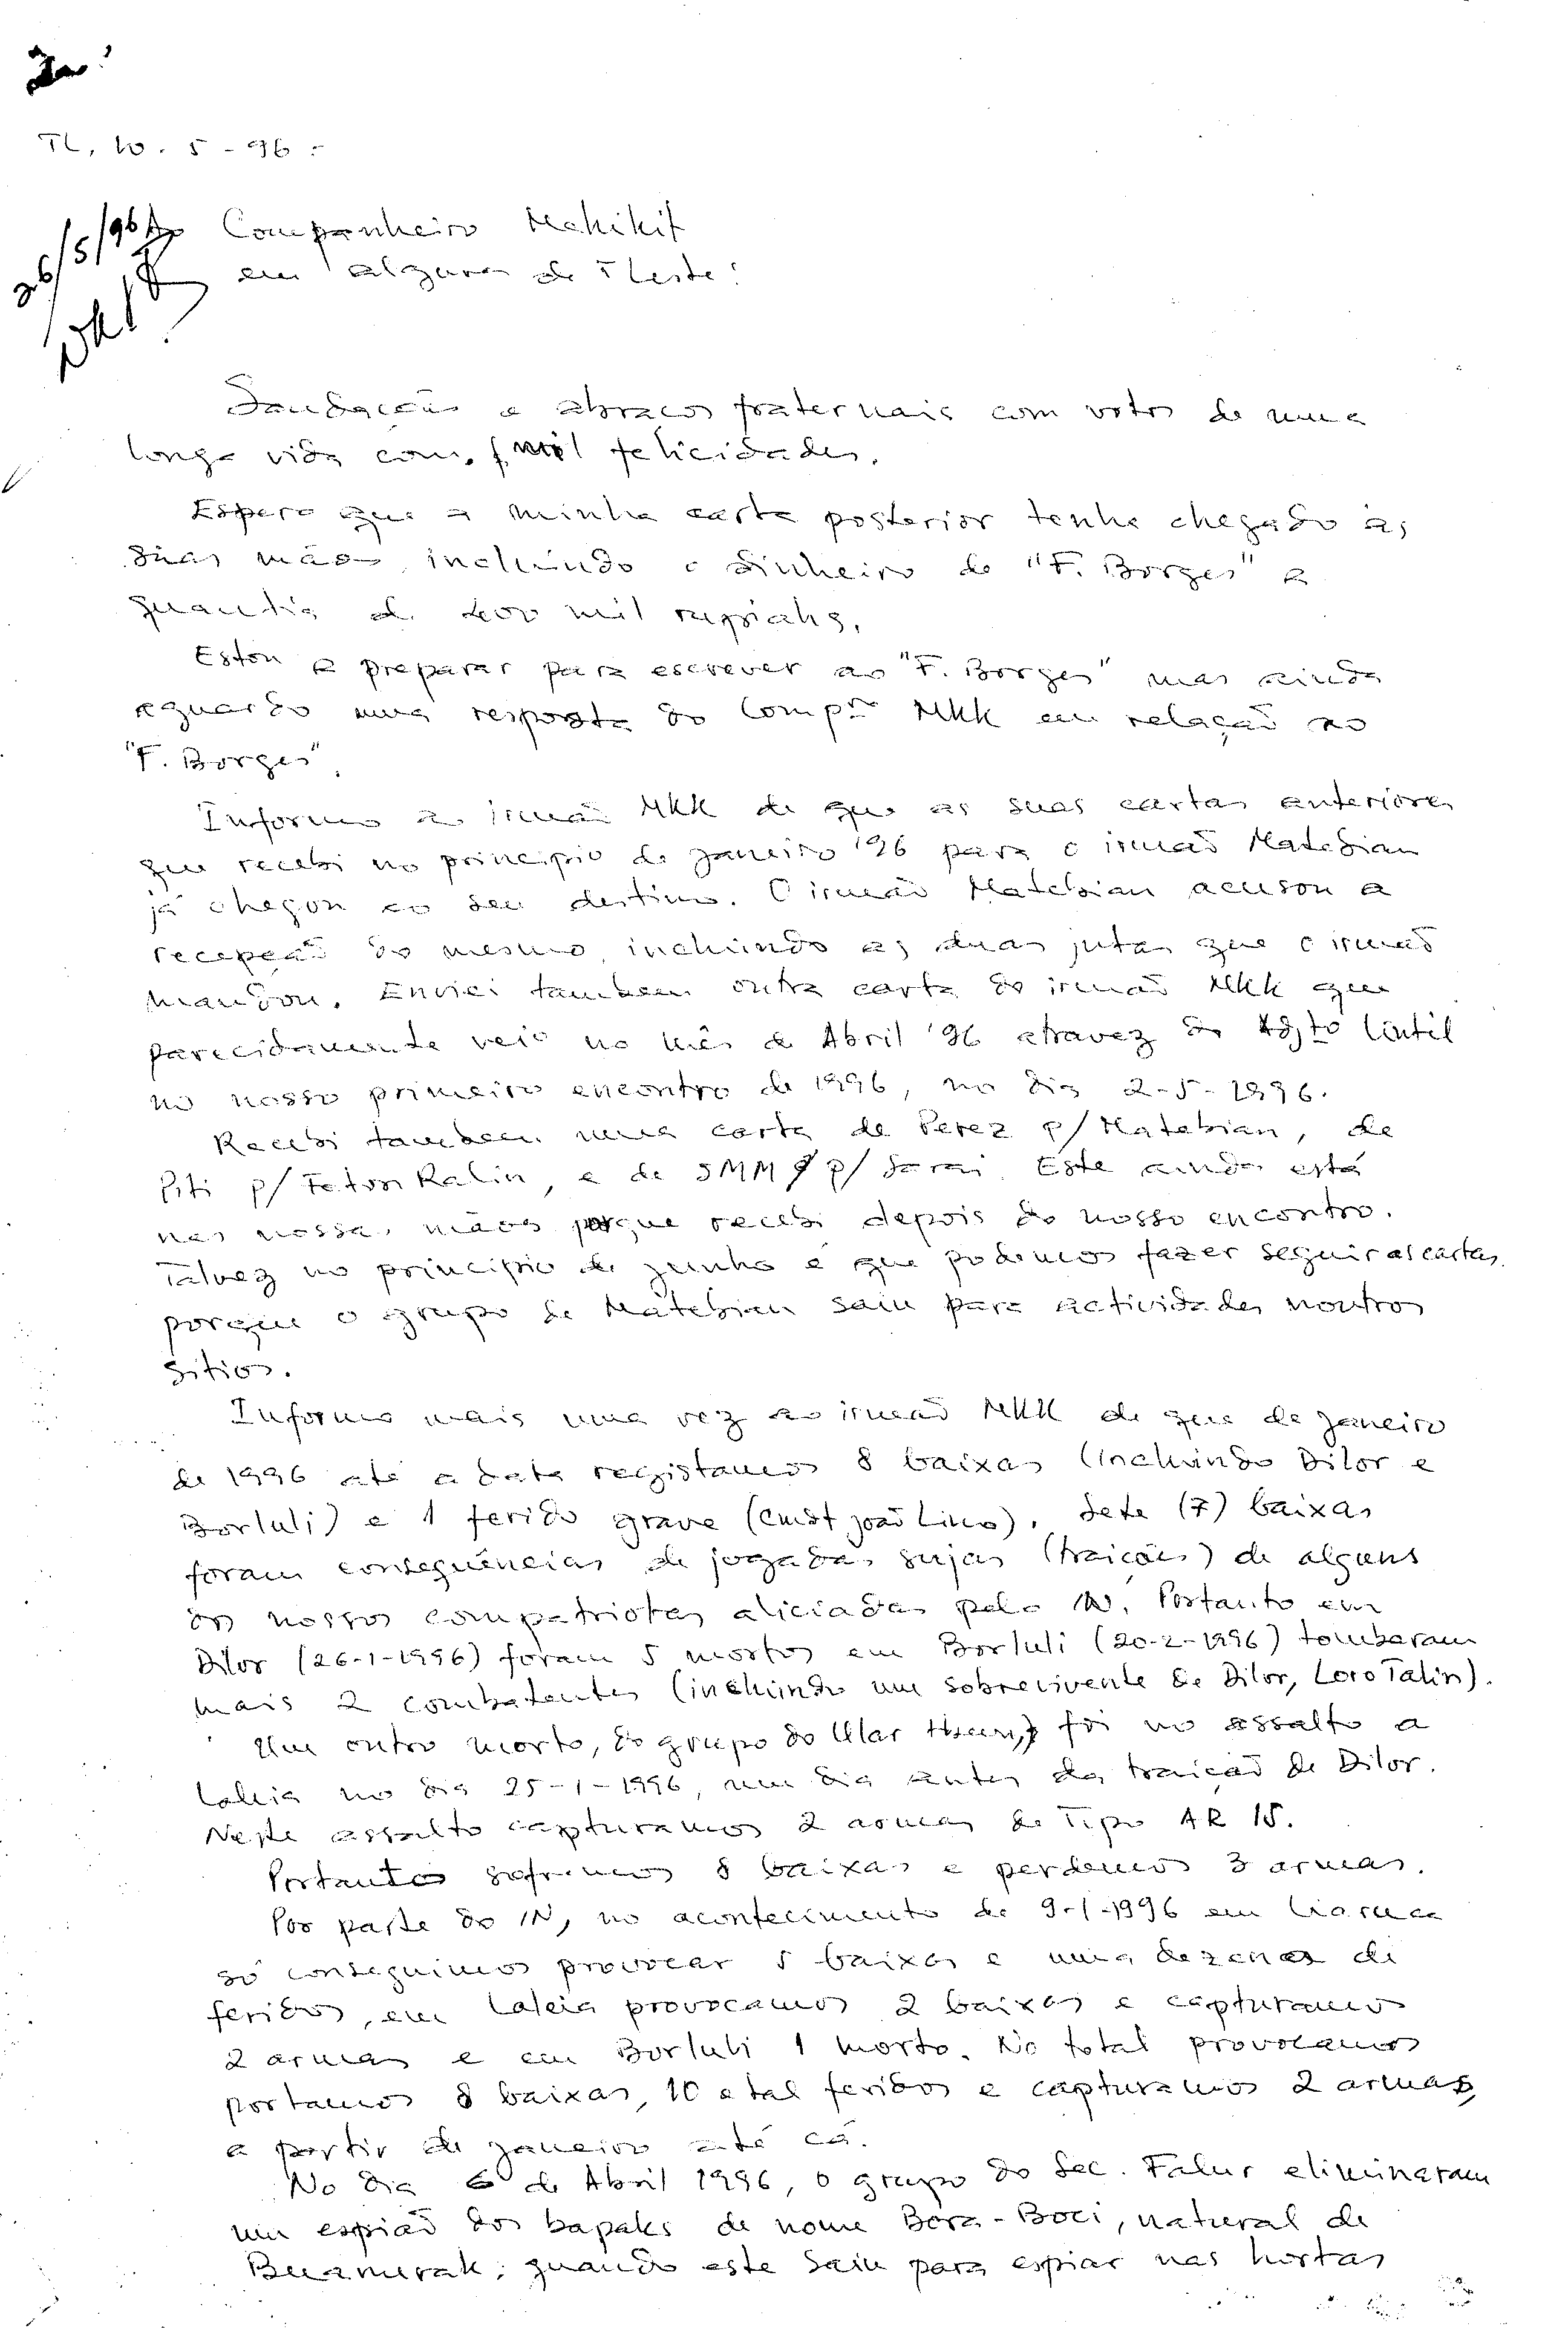 TL, 10 . 5 - 96 .
26/5/96 Ao Companheiro Mekikit
em algures de Tleste!
Saudações e abraços fraternais com votos de uma
longa vida com mil felicidades.
Espero que a minha carta posterior tenha chegado às
suas mãos, incluindo o dinheiro do "F. Borges" a
quantia de mil rupiahs.
Estou a preparar para escrever ao "F. Borges" mas ainda
aguardo uma resposta do Compº MKK em relação ao
"F. Borges".
Informo ao irmão MKK de que as suas cartas anteriores
que recebi no princípio de Janeiro '96 para o irmão Matebian
já chegou ao seu destino. O irmão Matebian acusou a
recepção do mesmo, incluindo as duas jutas que o irmão
mandou. Enviei tambem outra carta do irmão MKK que
parecidamente veio no mês de Abril '96 atravez do Adjto Lintil
no nosso primeiro encontro de 1996, no dia 2-5-1996.
Recebi tambem uma carta de Perez p/ Matebian, de
Piti p/ Feton Ralin, e de SMM p/ Sarai. Este ainda está
nas nossas mãos porque recebi depois do nosso encontro.
Talvez no princípio de Junho é que podemos fazer seguir as cartas,
porque o grupo de Matebian saiu para actividades noutros
sitios.
Informo mais uma vez ao irmão MKK de que de Janeiro
de 1996 até a data registamos 8 baixas (incluindo Dilor e
Borluli) e 1 ferido grave (Cmdt João Lino). Sete (7) baixas
foram consequências de jogadas sujas (traições) de alguns
dos nossos compatriotas aliciados pelo IN. Portanto em
Dilor (26-1-1996) foram 5 mortos em Borluli (20-2-1996) tombaram
mais 2 combatentes (incluindo um sobrevivente de Dilor, Loro Talin).
Um outro morto, do grupo do Ular foi no assalto a
Laleia no dia 25-1-1996, um dia antes da traição de Dilor.
Neste assalto capturamos 2 armas de Tipo AR 15.
Portanto sofremos 8 baixas e perdemos 3 armas.
Por parte do IN, no acontecimento de 9-1-1996 em Liaruca
só conseguimos provocar 5 baixas e uma dezenas de
feridos, em Laleia provocamos 2 baixas e capturamos
2 armas e em Borluli 1 morto. No total provocamos
portamos 8 baixas, 10 e tal feridos e capturamos 2 armas,
a partir de Janeiro até cá.
No dia 6 de Abril 1996, o grupo do Sec. Falur eliminaram
um espião dos bapaks de nome Bora-Boci, natural de
Buanurak; quando este saiu para espiar nas hortas